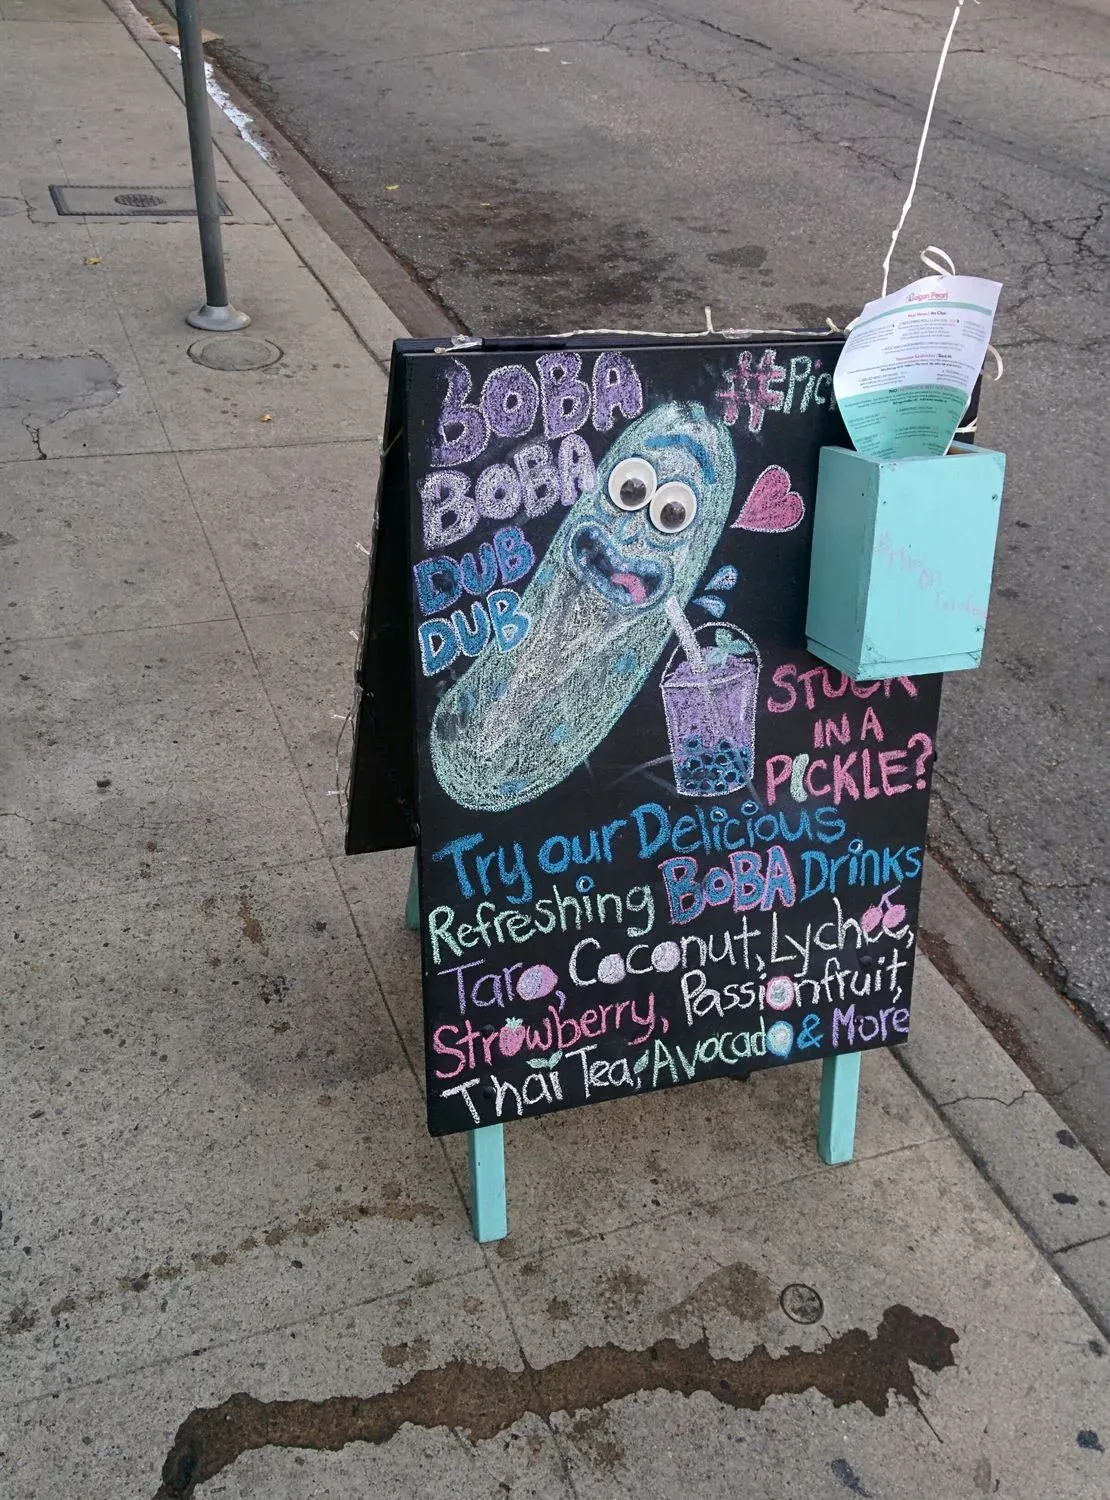 BOBA
BOBA
DUB
DUB
#EPIC
STUCK
IN A
PICKLE?
Try our Delicious
Refreshing BOBA Drinks
Taro, Coconut, Lychee,
Strawberry, Passionfruit,
Thai Tea, Avocado & More
Saigon Pearl